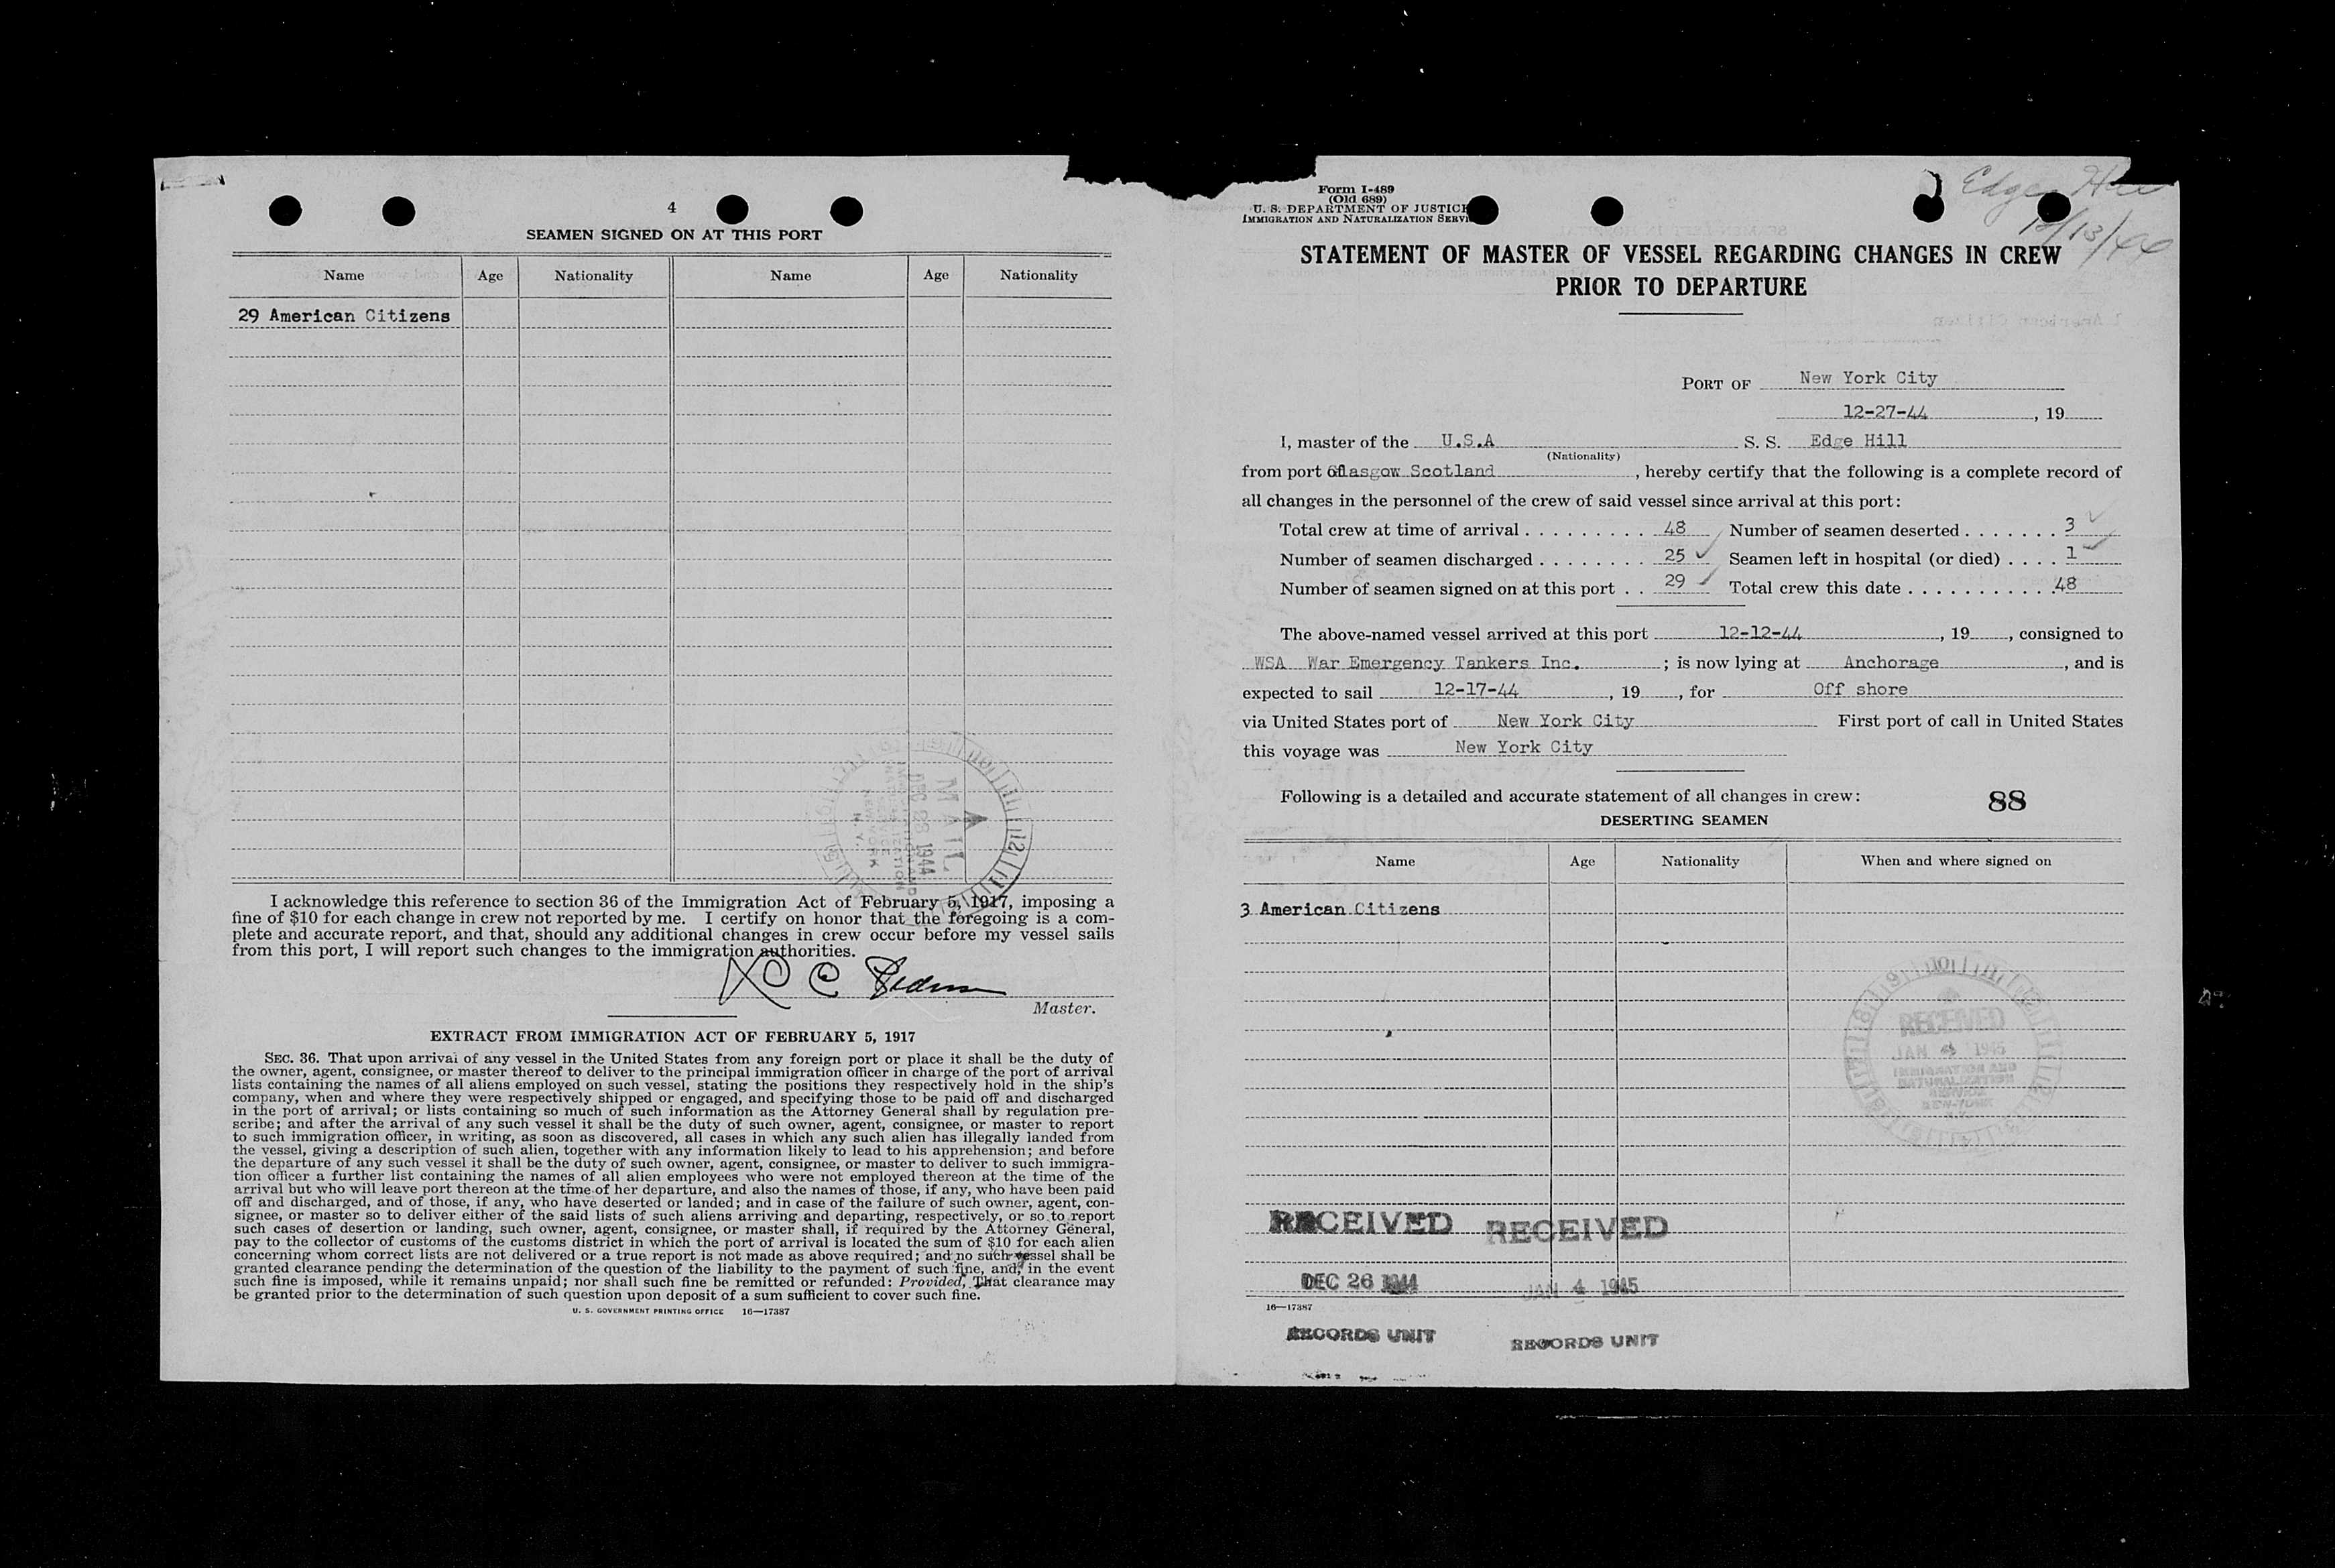 4
SEAMEN SIGNED ON AT THIS PORT
Name Age Nationality Name Age Nationality
29 American Citizens
MAIL
DEC 26 1944
I acknowledge this reference to section 36 of the Immigration Act of February 5, 1917, imposing a
fine of $10 for each change in crew not reported by me. I certify on honor that the foregoing is a com-
plete and accurate report, and that, should any additional changes in crew occur before my vessel sails
from this port, I will report such changes to the immigration authorities.
Master.
EXTRACT FROM IMMIGRATION ACT OF FEBRUARY 5, 1917
SEC. 36. That upon arrival of any vessel in the United States from any foreign port or place it shall be the duty of
the owner, agent, consignee, or master thereof to deliver to the principal immigration officer in charge of the port of arrival
lists containing the names of all aliens employed on such vessel, stating the positions they respectively hold in the ship's
company, when and where they were respectively shipped or engaged, and specifying those to be paid off and discharged
in the port of arrival; or lists containing so much of such information as the Attorney General shall by regulation pre-
scribe; and after the arrival of any such vessel it shall be the duty of such owner, agent, consignee, or master to report
to such immigration officer, in writing, as soon as discovered, all cases in which any such alien has illegally landed from
the vessel, giving a description of such alien, together with any information likely to lead to his apprehension; and before
the departure of any such vessel it shall be the duty of such owner, agent, consignee, or master to deliver to such immigra-
tion officer a further list containing the names of all alien employees who were not employed thereon at the time of the
arrival but who will leave port thereon at the time of her departure, and also the names of those, if any, who have been paid
off and discharged, and of those, if any, who have deserted or landed; and in case of the failure of such owner, agent, con-
signee, or master so to deliver either of the said lists of such aliens arriving and departing, respectively, or so to report
such cases of desertion or landing, such owner, agent, consignee, or master shall, if required by the Attorney General,
pay to the collector of customs of the customs district in which the port of arrival is located the sum of $10 for each alien
concerning whom correct lists are not delivered or a true report is not made as above required; and no such vessel shall be
granted clearance pending the determination of the question of the liability to the payment of such fine, and, in the event
such fine is imposed, while it remains unpaid; nor shall such fine be remitted or refunded: Provided, That clearance may
be granted prior to the determination of such question upon deposit of a sum sufficient to cover such fine.
U. S. GOVERNMENT PRINTING OFFICE 16—17387
Form I-489
(Old 689)
U. S. DEPARTMENT OF JUSTICE
IMMIGRATION AND NATURALIZATION SERVI
Edge
12/13/44
STATEMENT OF MASTER OF VESSEL REGARDING CHANGES IN CREW
PRIOR TO DEPARTURE
PORT OF New York City
12-27-44, 19
I, master of the U.S.A S. S. Edge Hill
(Nationality)
from port of Glasgow Scotland, hereby certify that the following is a complete record of
all changes in the personnel of the crew of said vessel since arrival at this port:
Total crew at time of arrival . . . . . . . . . . 48 Number of seamen deserted . . . . . . . 3
Number of seamen discharged . . . . . . . . . 25 Seamen left in hospital (or died) . . . . 1
Number of seamen signed on at this port . . 29 Total crew this date . . . . . . . . . . . 48
The above-named vessel arrived at this port 12-12-44, 19, consigned to
WSA War Emergency Tankers Inc. ; is now lying at Anchorage, and is
expected to sail 12-17-44, 19, for Off shore
via United States port of New York City First port of call in United States
this voyage was New York City
Following is a detailed and accurate statement of all changes in crew: 88
DESERTING SEAMEN
Name Age Nationality When and where signed on
3 American Citizens
RECEIVED
JAN 4 1945
IMMIGRATION AND
NATURALIZATION
SERVICE
NEW YORK
RECEIVED RECEIVED
DEC 26 1944 JAN 4 1945
16—17387
RECORDS UNIT RECORDS UNIT